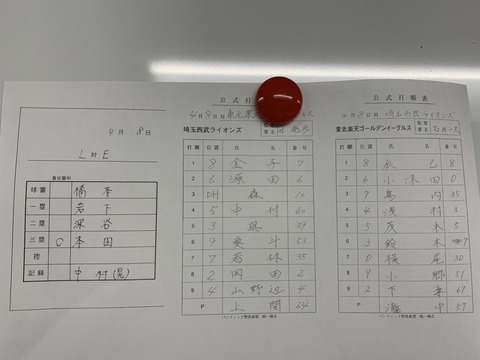 4月8日
L対E
責任審判
球審 橋本
一塁 岩下
二塁 深谷
三塁 ○ 本田
控
記録 中村(晃)
公式打順表
4月8日
埼玉西武ライオンズ
打順 位置 選手 番号
1 8 金子 7
2 6 源田 6
3 DH 森 10
4 5 中村 60
5 3 呉 39
6 9 栗山
7 7 若林 35
8 2 岡田 2
9 4 山野辺 4
P 上間 64
パシフィック野球連盟
公式打順表
4月8日 埼玉西武ライオンズ
東北楽天ゴールデンイーグルス
打順 位置 選手 番号
1 8 辰己 8
2 6 小深田 0
3 7 島内 35
4 4 浅村 3
5 5 茂木 5
6 3 鈴木
7 横尾 30
8 9 小郷 51
9 2 下妻 69
P 瀧中 57
パシフィック野球連盟